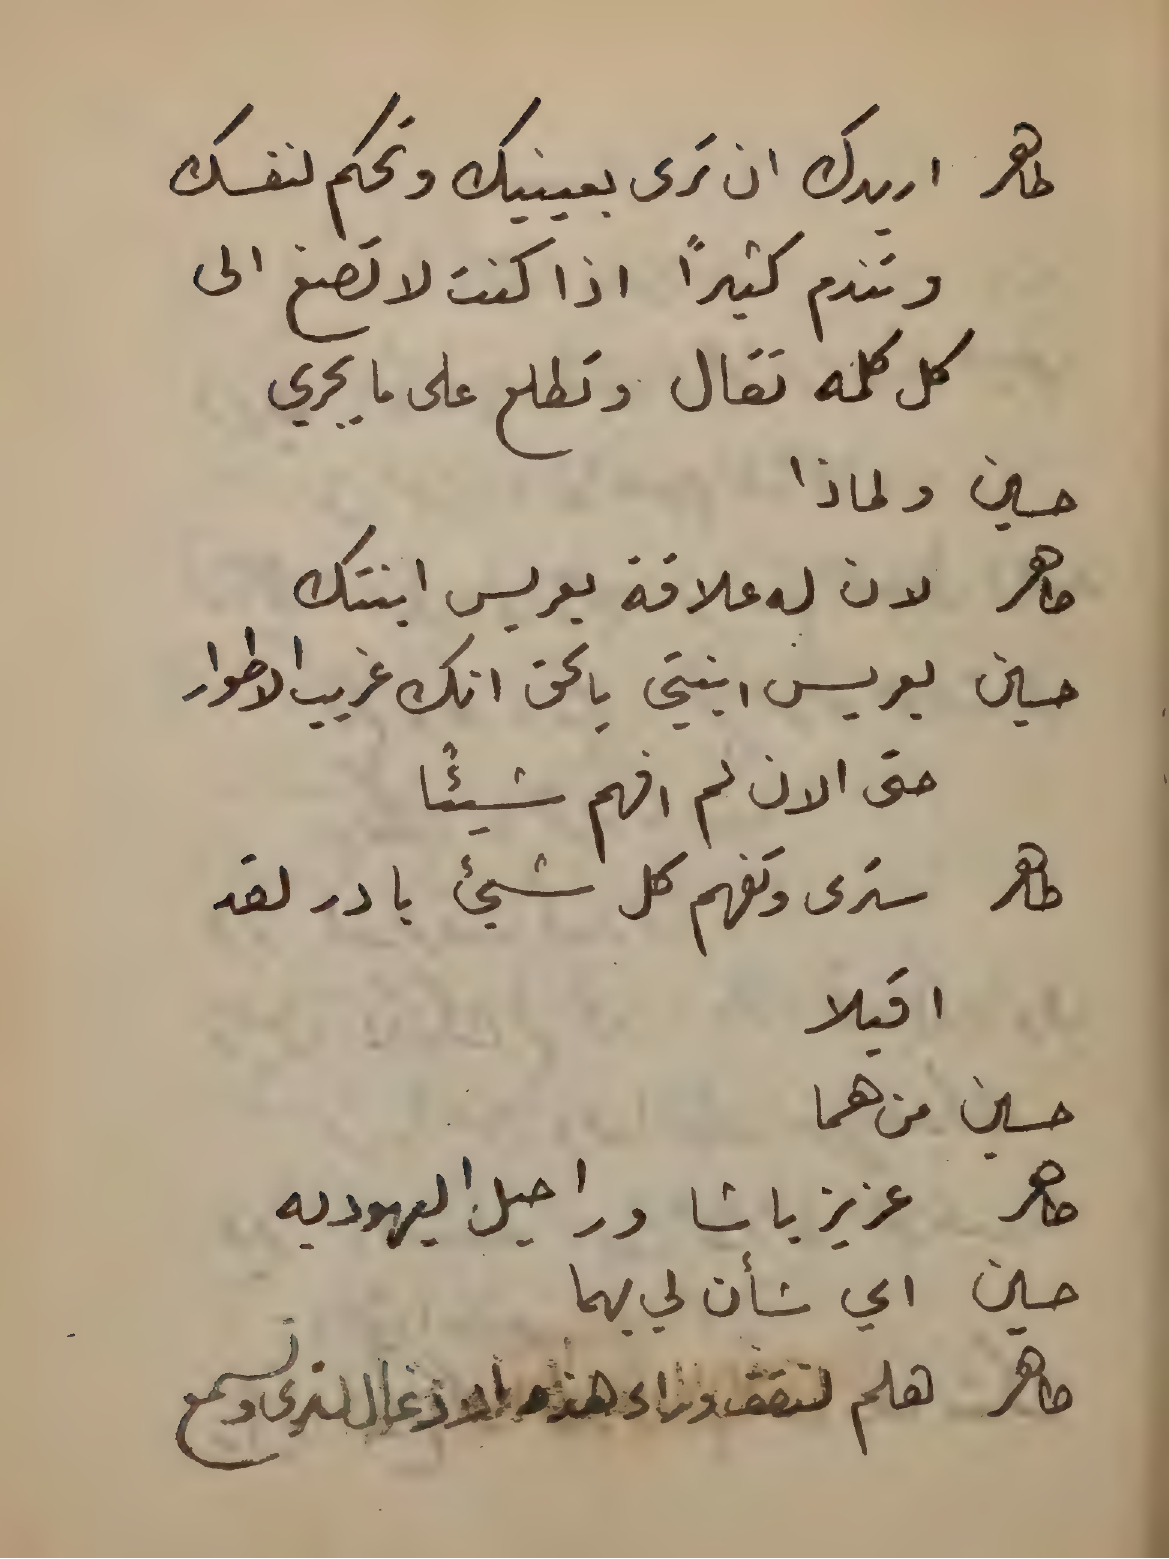 طاهر اريدك ان ترى بعينيك وتحكم لنفسك
وتندم كثيرًا اذا كنت لا تصغ الى
كل كلمه تقال وتطلع على ما يجري
حسين ولماذا
طاهر لان له علاقة بعريس ابنتك
حسين بعريس ابنتي بالحق انك غريب الاطوار
حتى الان لم افهم شيئًا
طاهر سترى وتفهم كل شيئ بادر لقد
اقبلا
حسين من هما
طاهر عزيز باشا وراحيل اليهوديه
حسين اي شأن لي بهما
طاهر هلم لنقف وراء هذه الادغال لنرى ونسمع